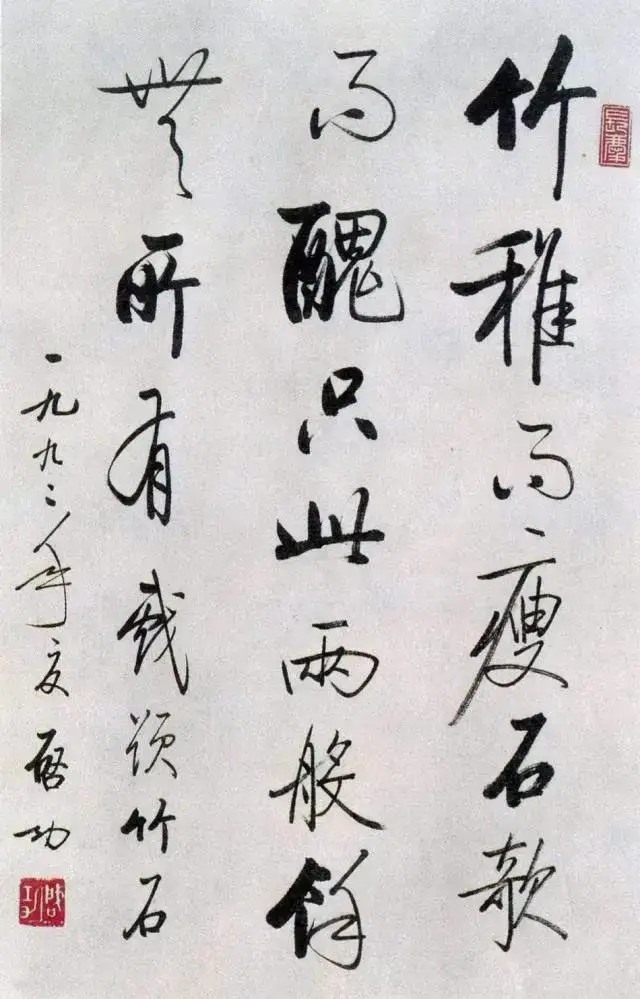 竹稚而瘦石欹
而醜只此兩般餘
無所有戲題竹石
一九九二年夏啓功
長慶
啓功